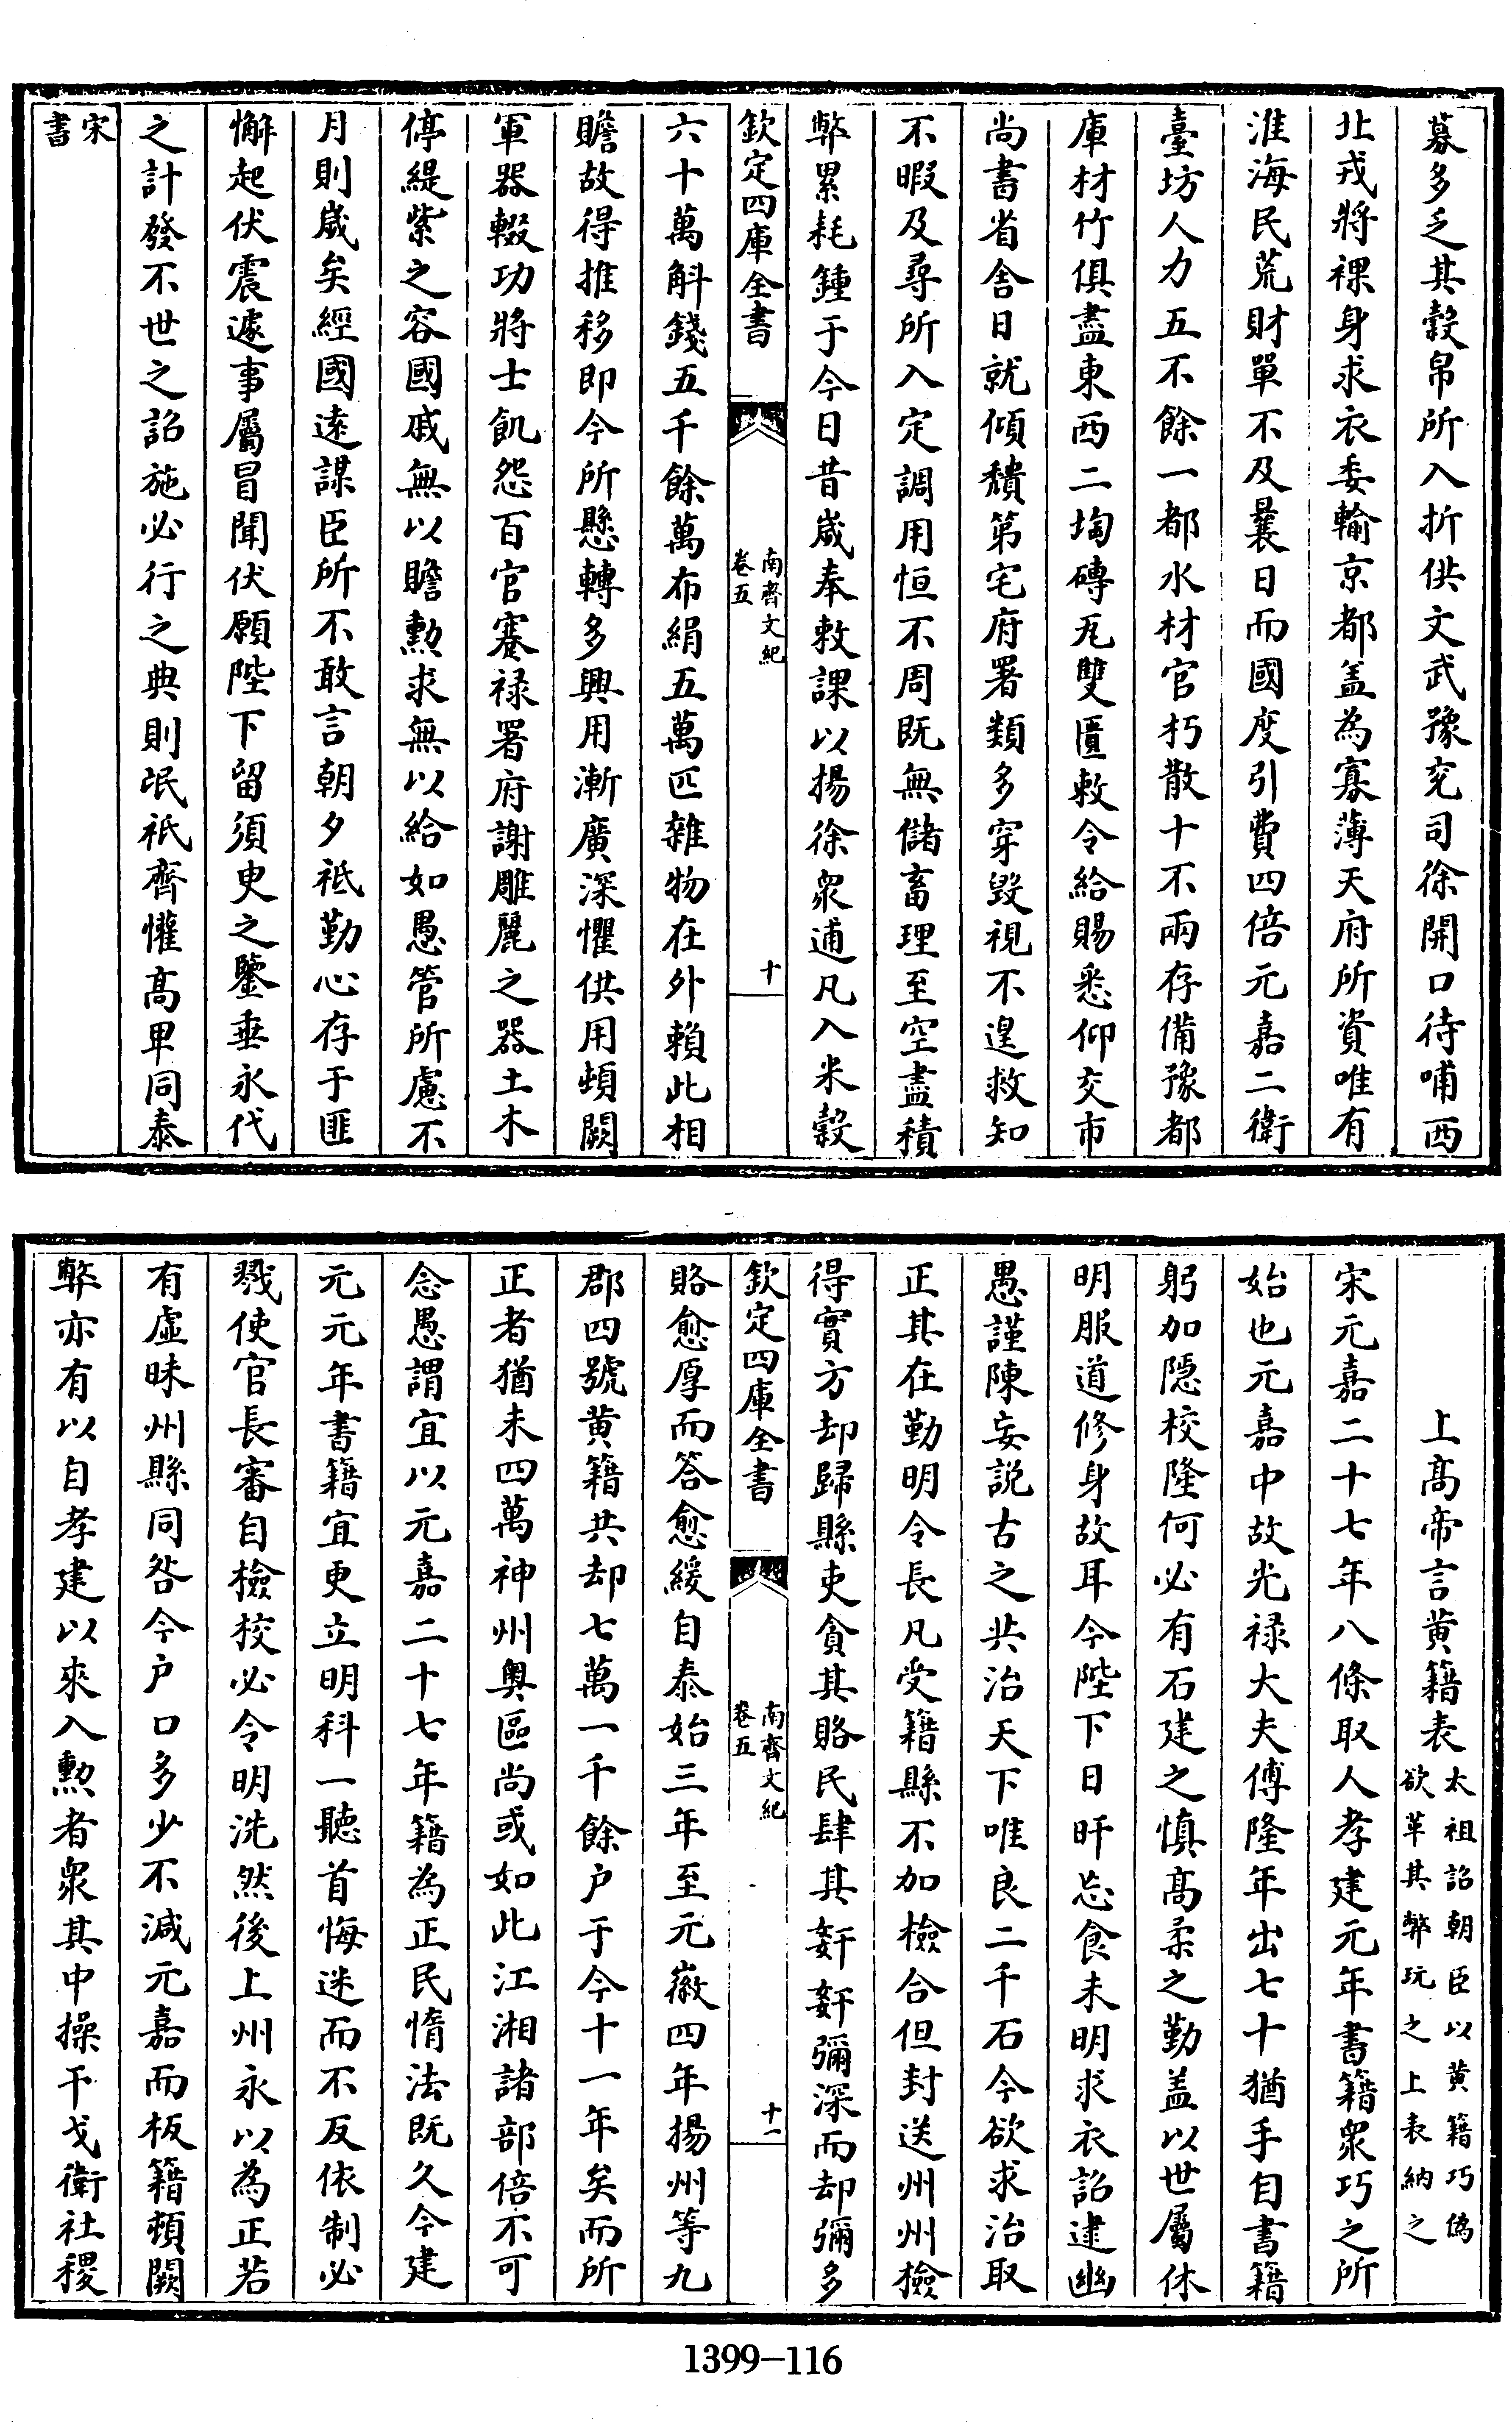 募多乏其穀帛所入折供文武豫兖司徐開口待哺西
北戎將裸身求衣委輸京都盖為寡薄天府所資唯有
淮海民荒財單不及曩日而國度引費四倍元嘉二衛
臺坊人力五不餘一都水材官朽散十不兩存備豫都
庫材竹俱盡東西二堈磚瓦雙匱敕令給賜悉仰交市
尚書省舍日就傾穨第宅府署類多穿毁視不遑救知
不暇及尋所入定調用恒不周既無儲畜理至空盡積
弊累耗鍾于今日昔歲奉敕課以揚徐衆逋凡入米穀
欽定四庫全書
南齊文紀
卷五
十
六十萬斛錢五千餘萬布絹五萬匹雜物在外賴此相
贍故得推移即今所懸轉多興用漸廣深懼供用頓闕
軍器輟功將士飢怨百官騫禄署府謝雕麗之器土木
停緹紫之容國戚無以贍勲求無以給如愚管所慮不
月則歲矣經國逺謀臣所不敢言朝夕祗勤心存于匪
懈起伏震遽事屬冒聞伏願陛下留須臾之鑒垂永代
之計發不世之詔施必行之典則氓祇齊懽髙卑同泰
宋
書
上髙帝言黄籍表
太祖詔朝臣以黄籍巧偽
欲革其弊玩之上表納之
宋元嘉二十七年八條取人孝建元年書籍衆巧之所
始也元嘉中故光禄大夫傅隆年出七十猶手自書籍
躬加隠校隆何必有石建之慎髙柔之勤盖以世屬休
明服道修身故耳今陛下日旰忘食未明求衣詔逮幽
愚謹陳妄説古之共治天下唯良二千石今欲求治取
正其在勤明令長凡受籍縣不加檢合但封送州州檢
得實方却歸縣吏貪其賂民肆其姧姧彌深而却彌多
欽定四庫全書
南齊文紀
卷五
十一
賂愈厚而答愈緩自泰始三年至元徽四年揚州等九
郡四號黄籍共却七萬一千餘户于今十一年矣而所
正者猶未四萬神州奥區尚或如此江湘諸部倍不可
念愚謂宜以元嘉二十七年籍為正民惰法既久今建
元元年書籍宜更立明科一聽首悔迷而不反依制必
戮使官長審自檢校必令明洗然後上州永以為正若
有虛昧州縣同咎今户口多少不減元嘉而板籍頓闕
弊亦有以自孝建以來入勲者衆其中操干戈衛社稷
1399-116